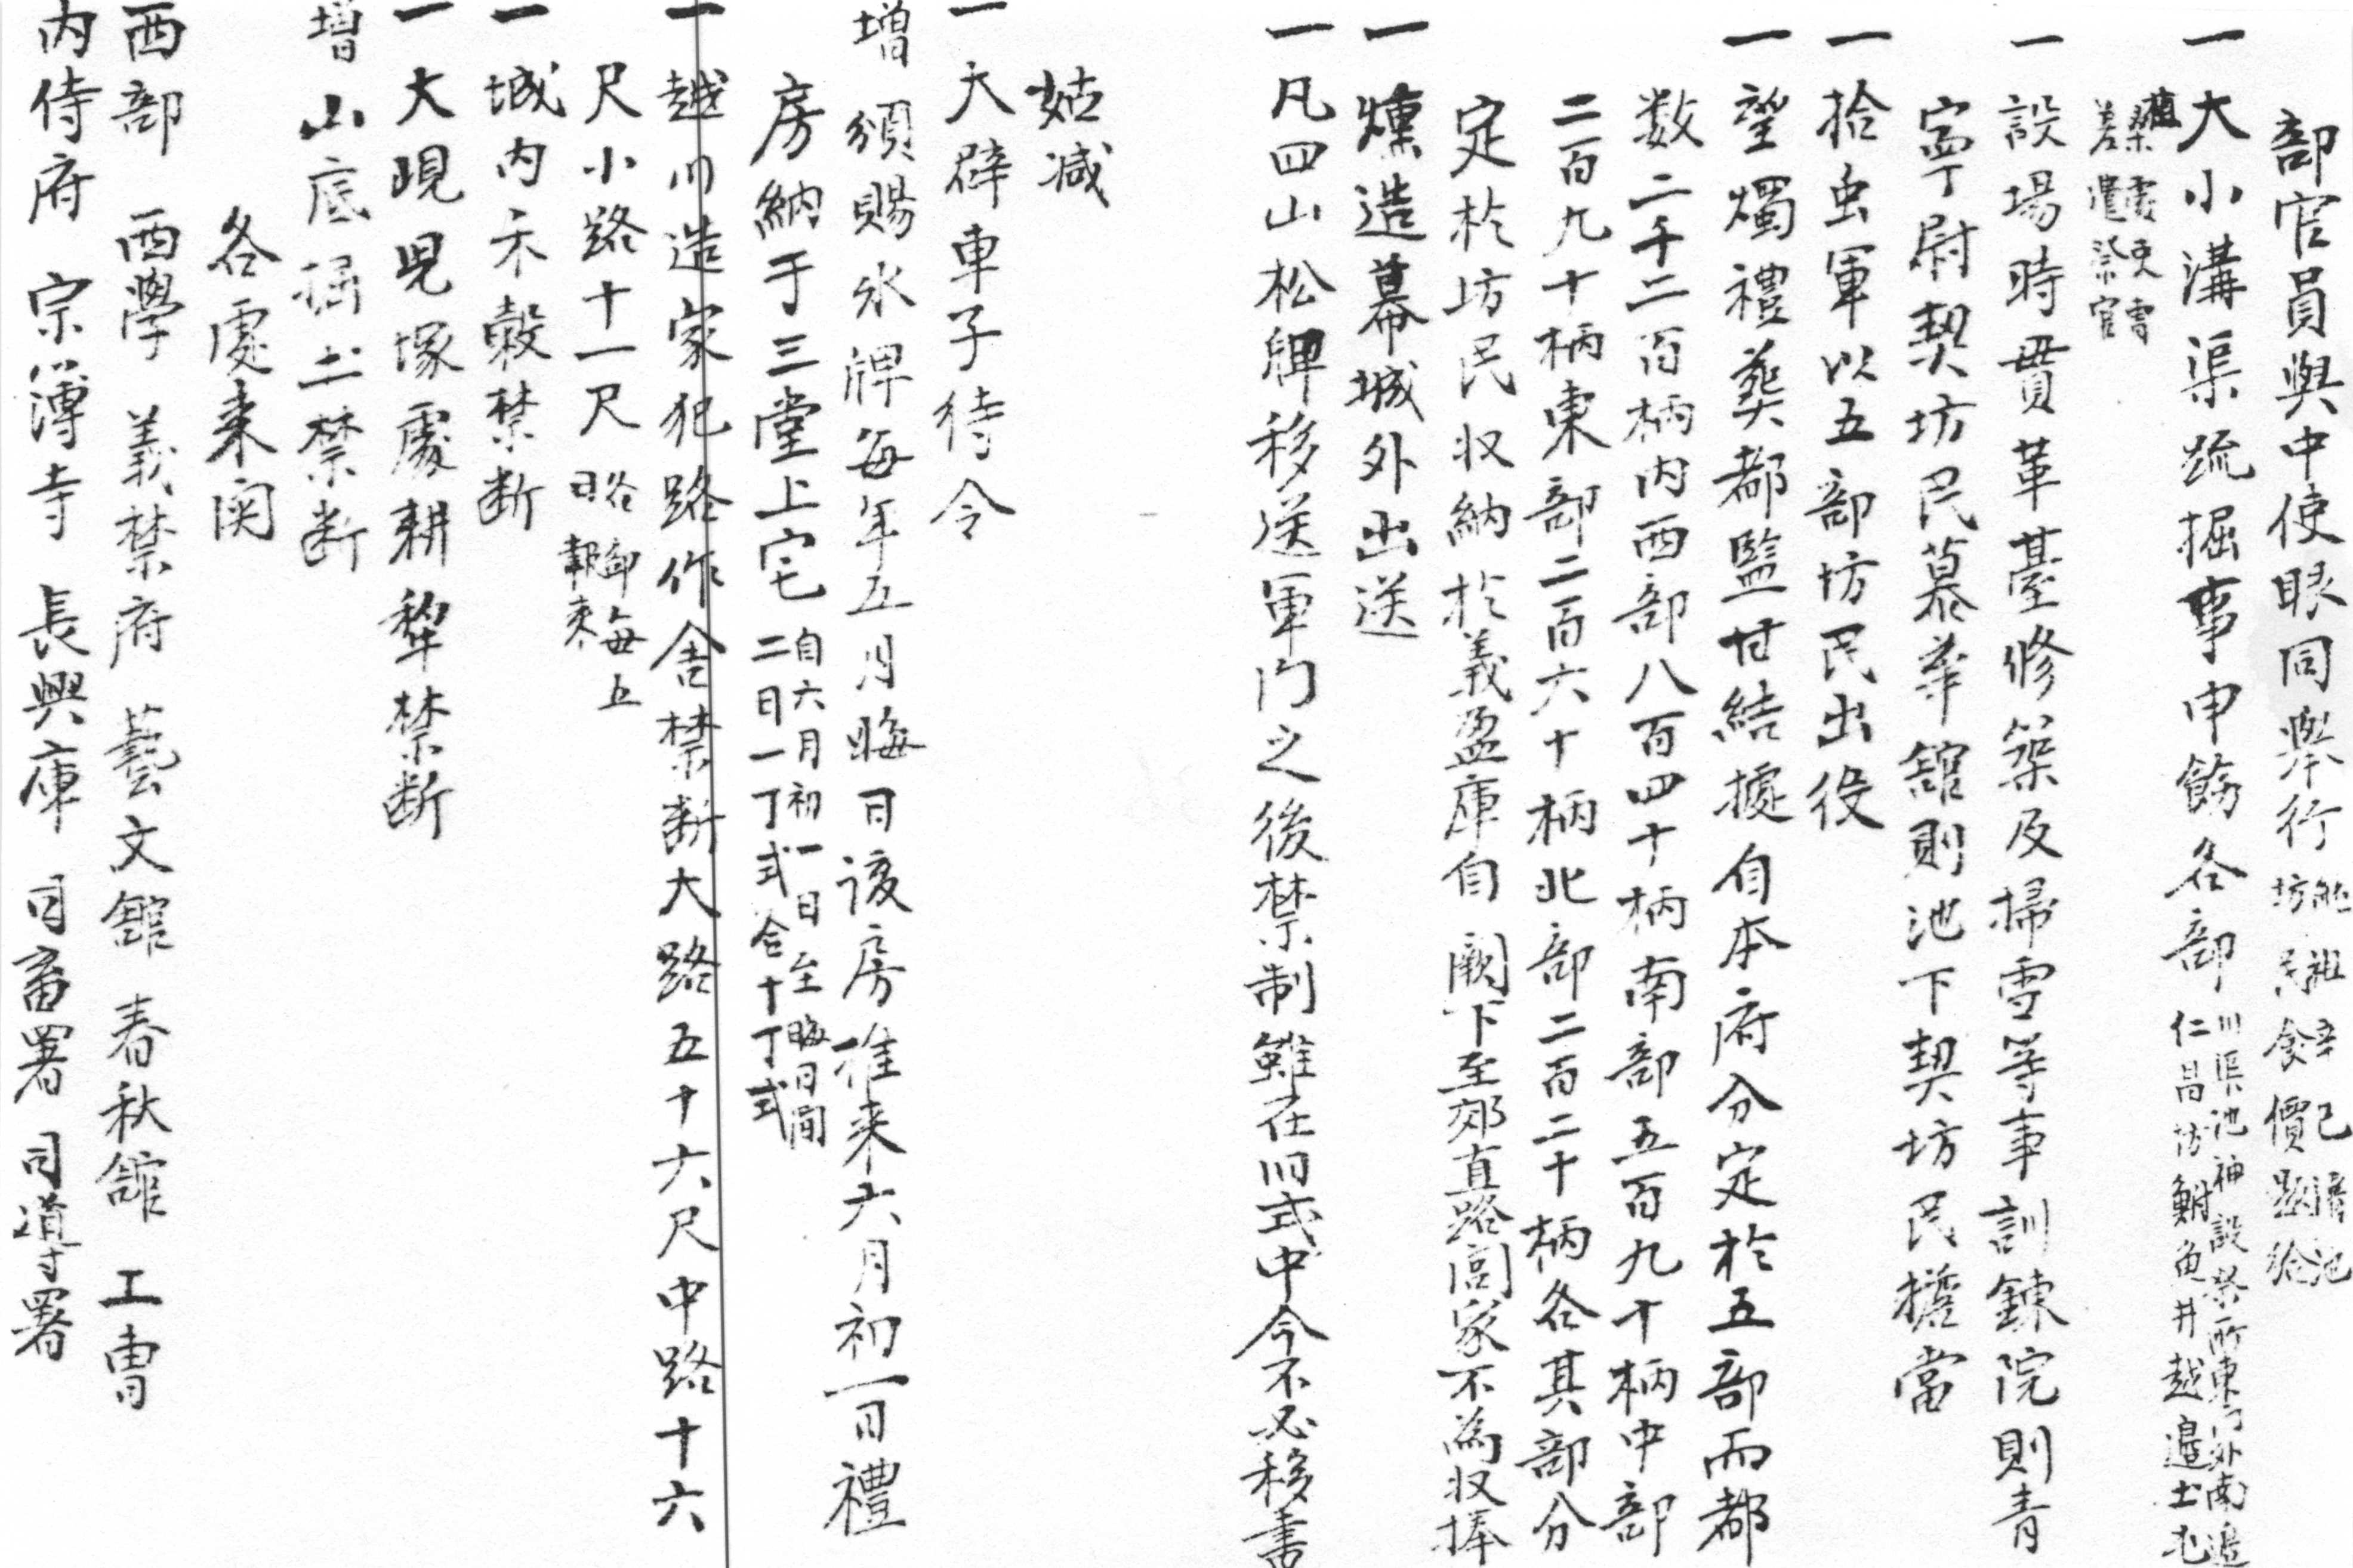 部官員與中使眼同擧行
坊民食價題給
一大小溝渠疏掘事申飭各部
川渠池神設祭所東門外南邊
仁昌坊鮒魚井越邊土屯
差遣祭官
一設場時貫革基修築及掃雪等事訓鍊院則青
寧尉契坊民慕華舘則池下契坊民擔當
一拾虫軍以五部坊民出役
一望燭禮葬都監甘結據自本府分定於五部而都
数二千二百柄內西部八百四十柄南部五百九十柄中部
二百九十柄東部二百六十柄北部二百二十柄各其部分
定於坊民收納於義盈庫自 闕下至郊直路閭家不為收捧
一燻造幕城外出送
一凡四山松牌移送軍门之後禁制雖在旧式中今不必移書
姑减
一大辟車子待令
增 頒賜氷牌每年五月晦日該房推来六月初一日禮
房納于三堂上宅
自六月初一日至晦日間
二日一丁式合十丁式
一越川造家犯路作舍禁断大路五十六尺中路十六
尺小路十一尺
一城內禾穀禁断
一大峴児塚處耕犂禁断
增山底掘土禁断
各處来関
西部 西學 義禁府 藝文舘 春秋舘 工曹
內侍府 宗簿寺 長興庫 司畜署 司導署